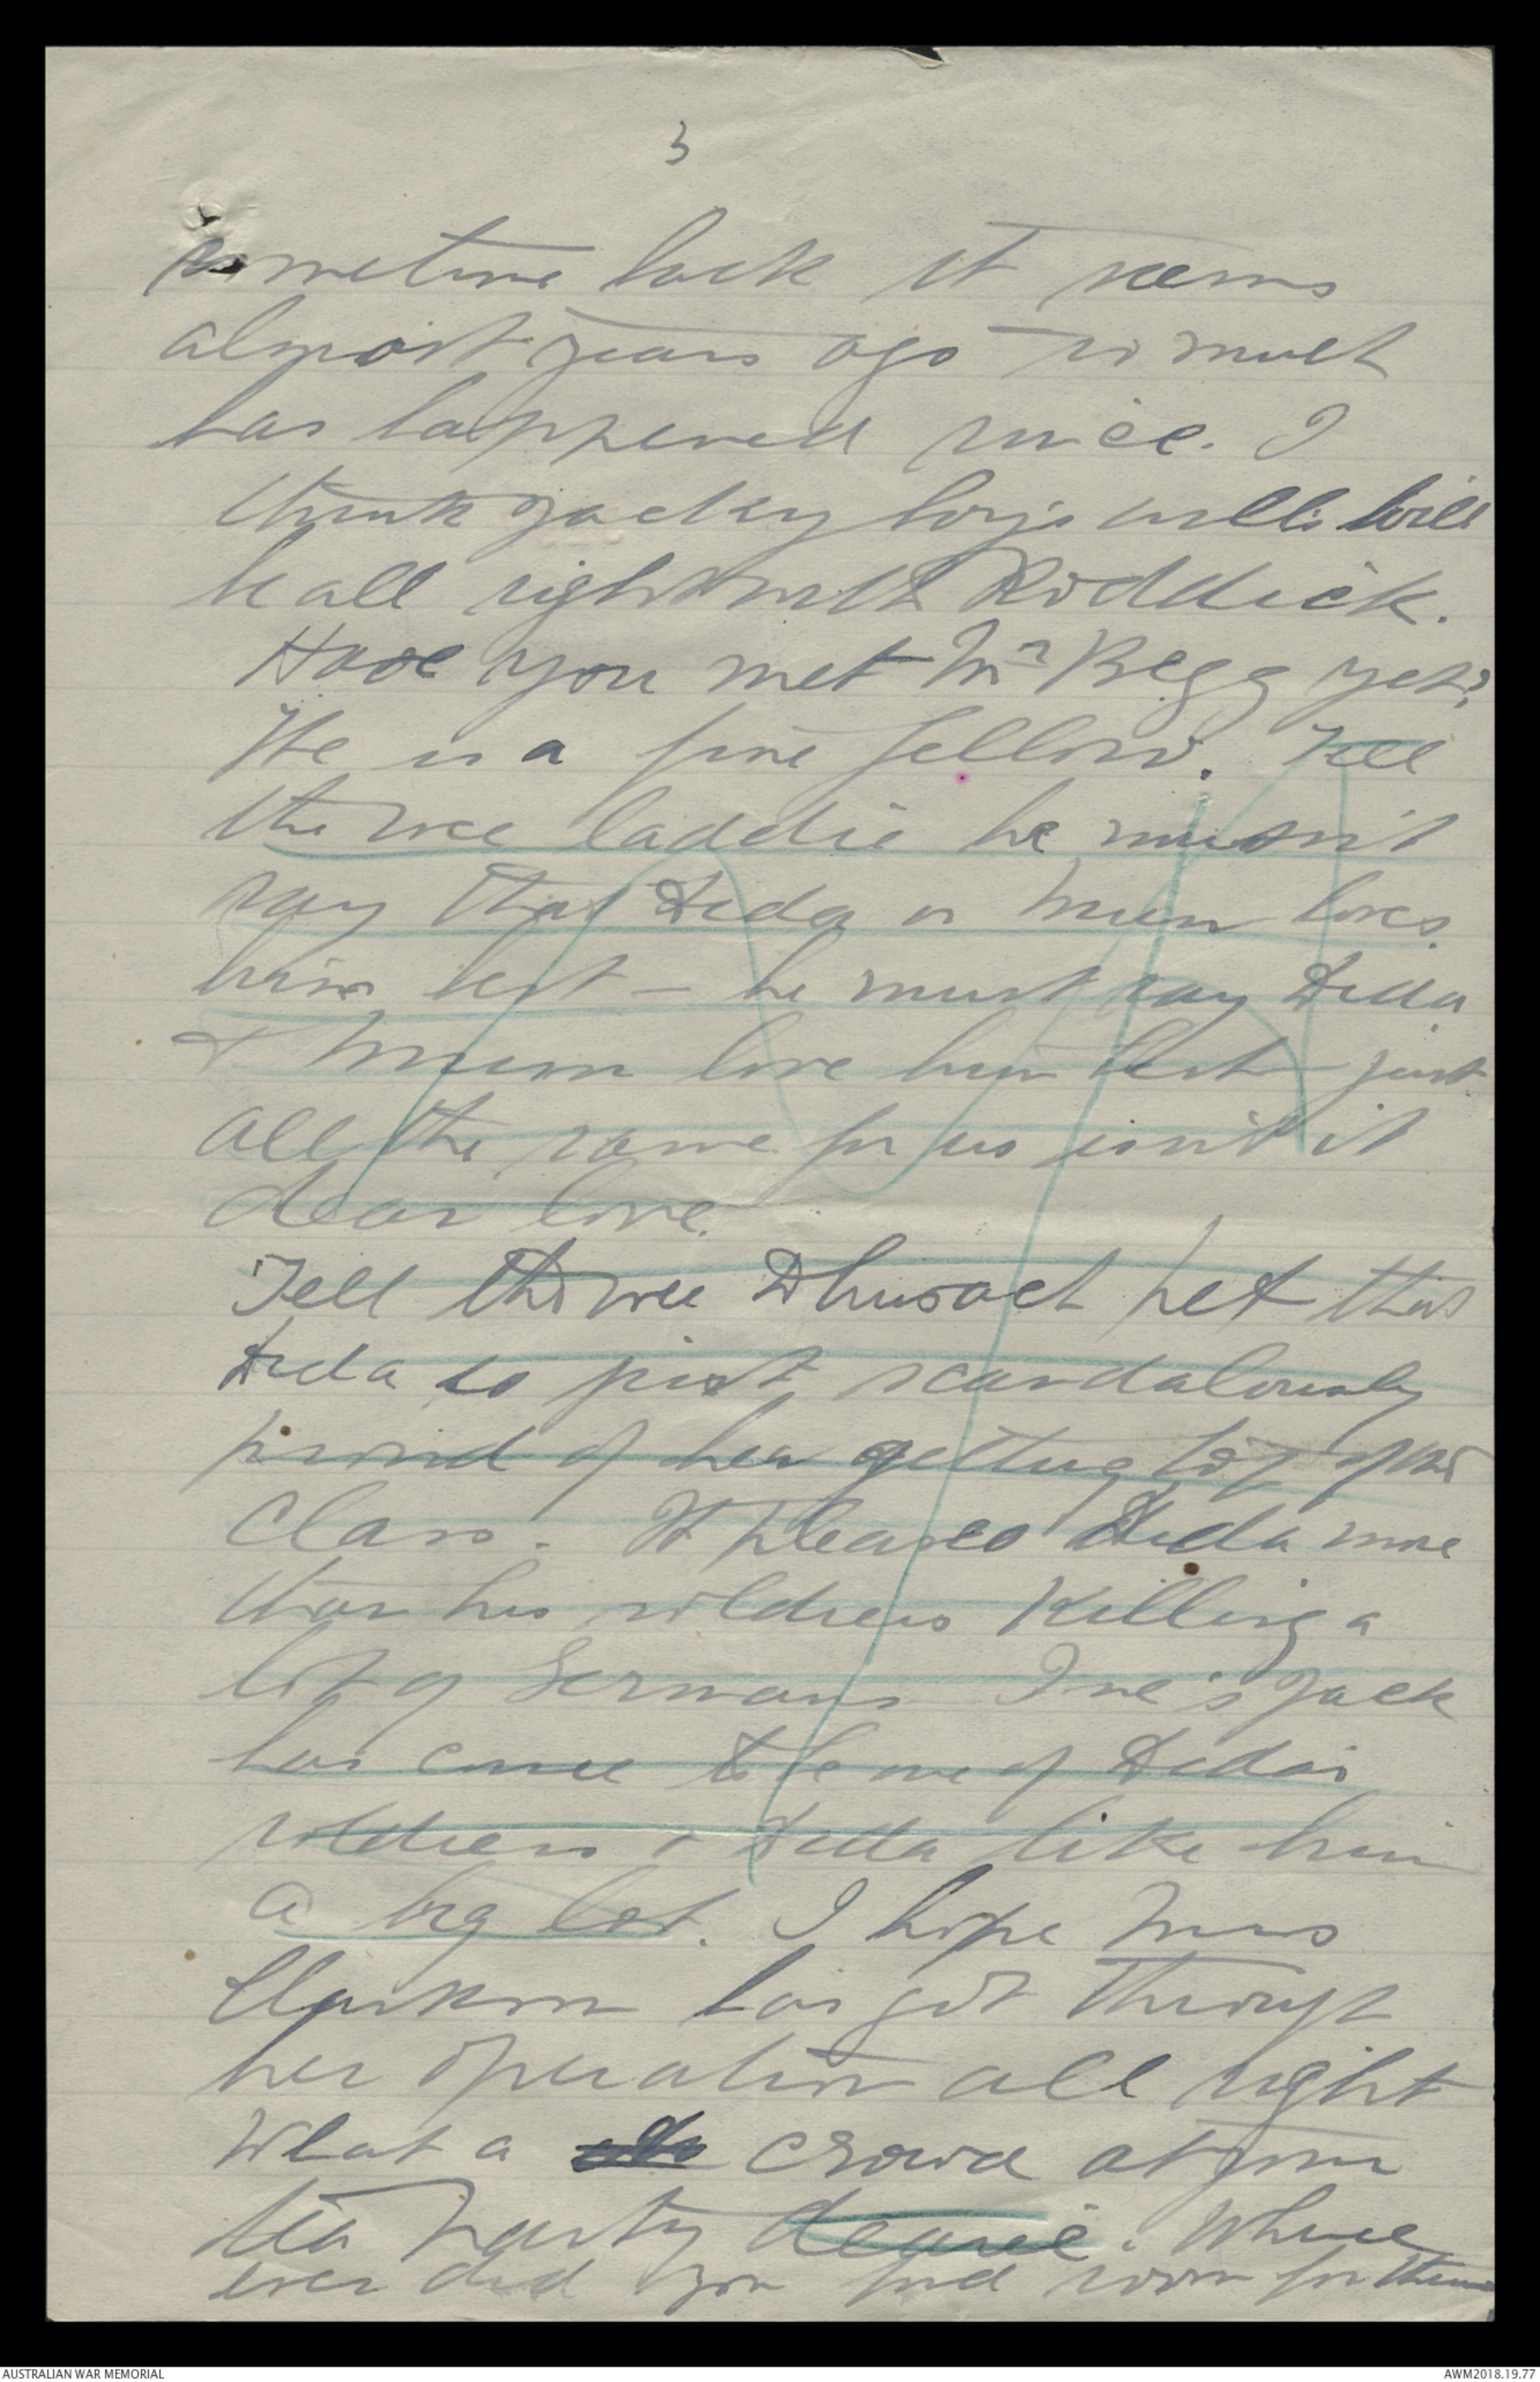 3
sometime back it seems
almost years ago so much
has happened since. I
think Jacky boy's will
be all right with Riddick.
Have you met Mr Begg yet?
He is a fine fellow. Tell
the wee laddie he musn't
say that Dida or Mum loves
him best - he must say Dida
& Mum love him best - just
all the same for us isn't it
dear love.
Tell the wee pet that
Dida is just scandalously
proud of her getting top of her
Class. It pleases Dida more
than his soldiers Killing a
lot of Germans Jack
has come to be one of Dida's
soldiers & Dida like him
a big lot. I hope Miss
Clarkson has got through
her operation all right
What a crowd at your
tea party dearie. Where
ever did you find room for them
AUSTRALIAN WAR MEMORIAL
AWM2018.19.77